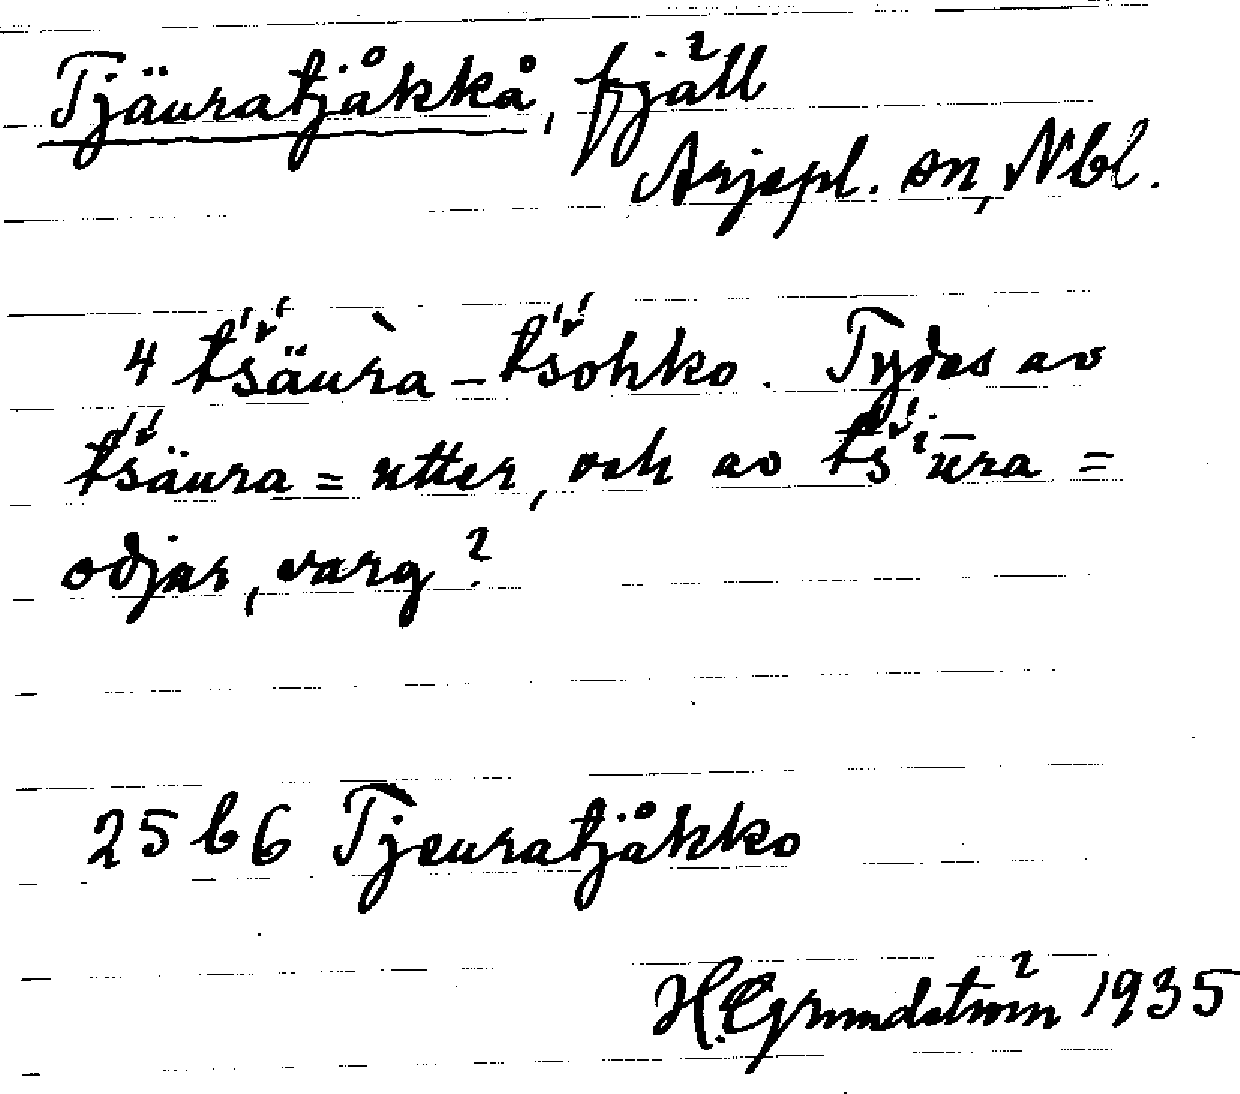 Tjäuratjåkkå, fjäll
Arjepl. sn, Nbl.
4 t́s̆äurà - t́s̆ohko. Tydes av
t́s̆äura = utter, och av t́s̆iūra =
odjur, varg?
25 b6 Tjeuratjåkko
H. Grundström 1935